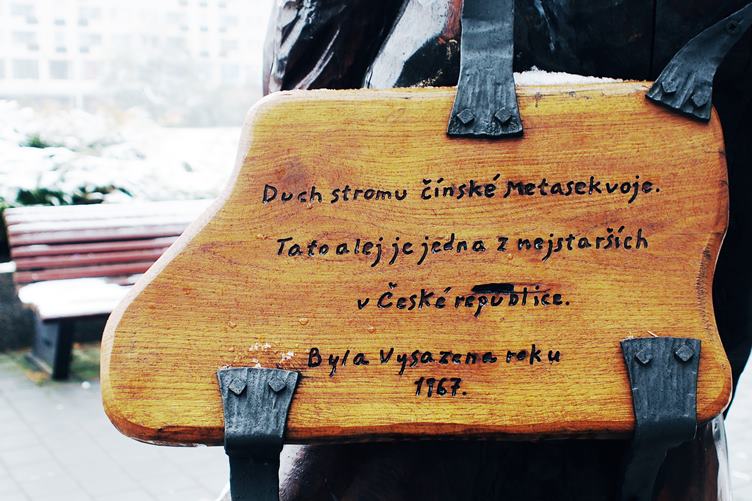 Duch stromu čínské Metasekvoje.
Tato alej je jedna z nejstarších
v České republice.
Byla Vysazena roku
1967.